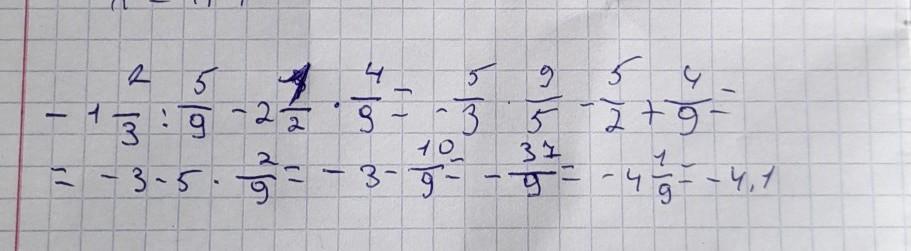 - 1 2/3 : 5/9 - 2 1/2 · 4/9 = - 5/3 · 9/5 - 5/2 + 4/9 =
= - 3 - 5 · 2/9 = - 3 - 10/9 = - 37/9 = - 4 1/9 = - 4,1